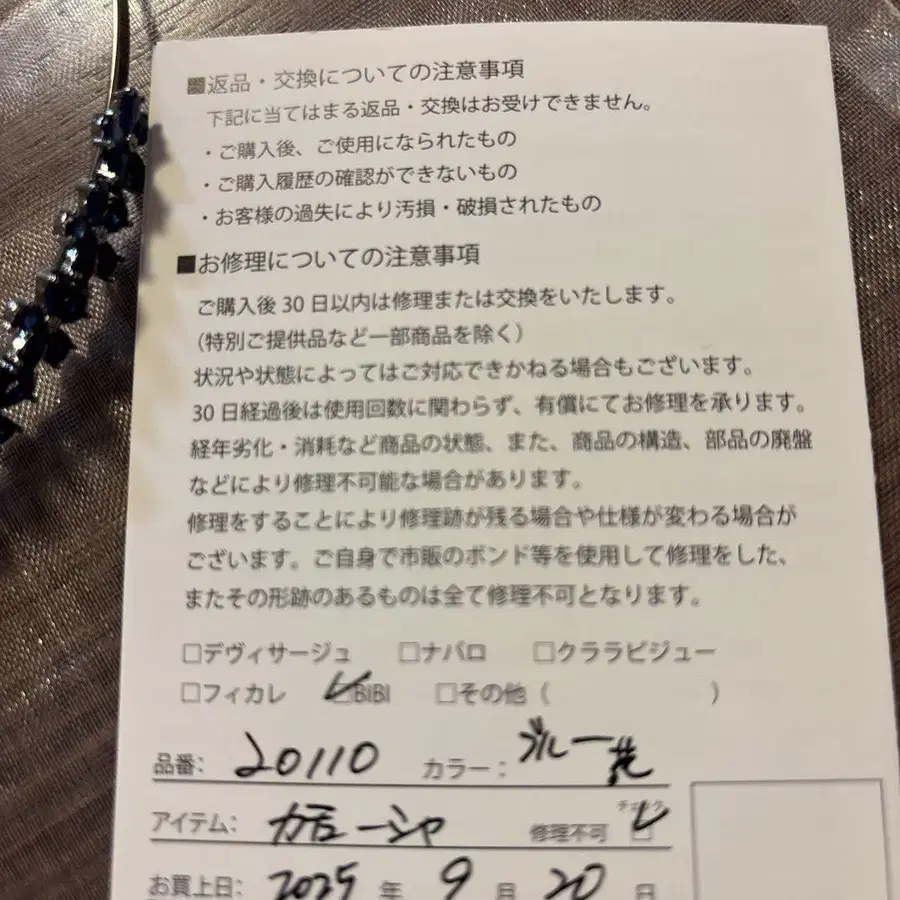 ■返品・交換についての注意事項
下記に当てはまる返品・交換はお受けできません。
・ご購入後、ご使用になられたもの
・ご購入履歴の確認ができないもの
・お客様の過失により汚損・破損されたもの
■お修理についての注意事項
ご購入後30日以内は修理または交換をいたします。
（特別ご提供品など一部商品を除く）
状況や状態によってはご対応できかねる場合もございます。
30日経過後は使用回数に関わらず、有償にてお修理を承ります。
経年劣化・消耗など商品の状態、また、商品の構造、部品の廃盤
などにより修理不可能な場合があります。
修理をすることにより修理跡が残る場合や仕様が変わる場合が
ございます。ご自身で市販のボンド等を使用して修理をした、
またその形跡のあるものは全て修理不可となります。
□デヴィサージュ □ナバロ □クララビジュー
□フィカレ ☑BIBI □その他（ ）
品番： 20110 カラー： ブルー
アイテム： カチューシャ 修理不可 チェック ☑
お買上日： 2025 年 9 月 20 日